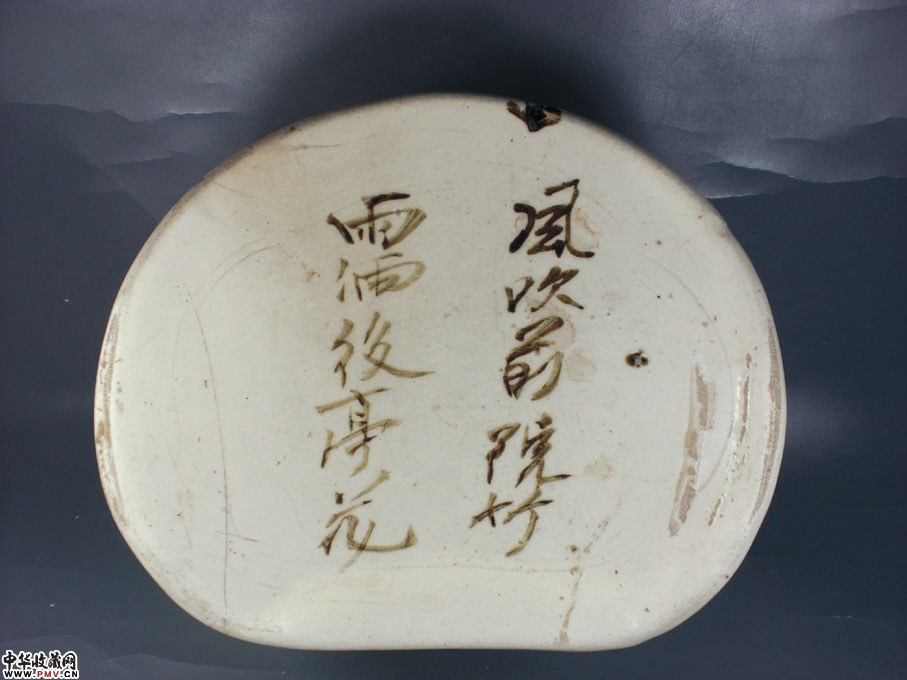 風吹前院竹
雨洒後亭花
中华收藏网
WWW.PMV.CN